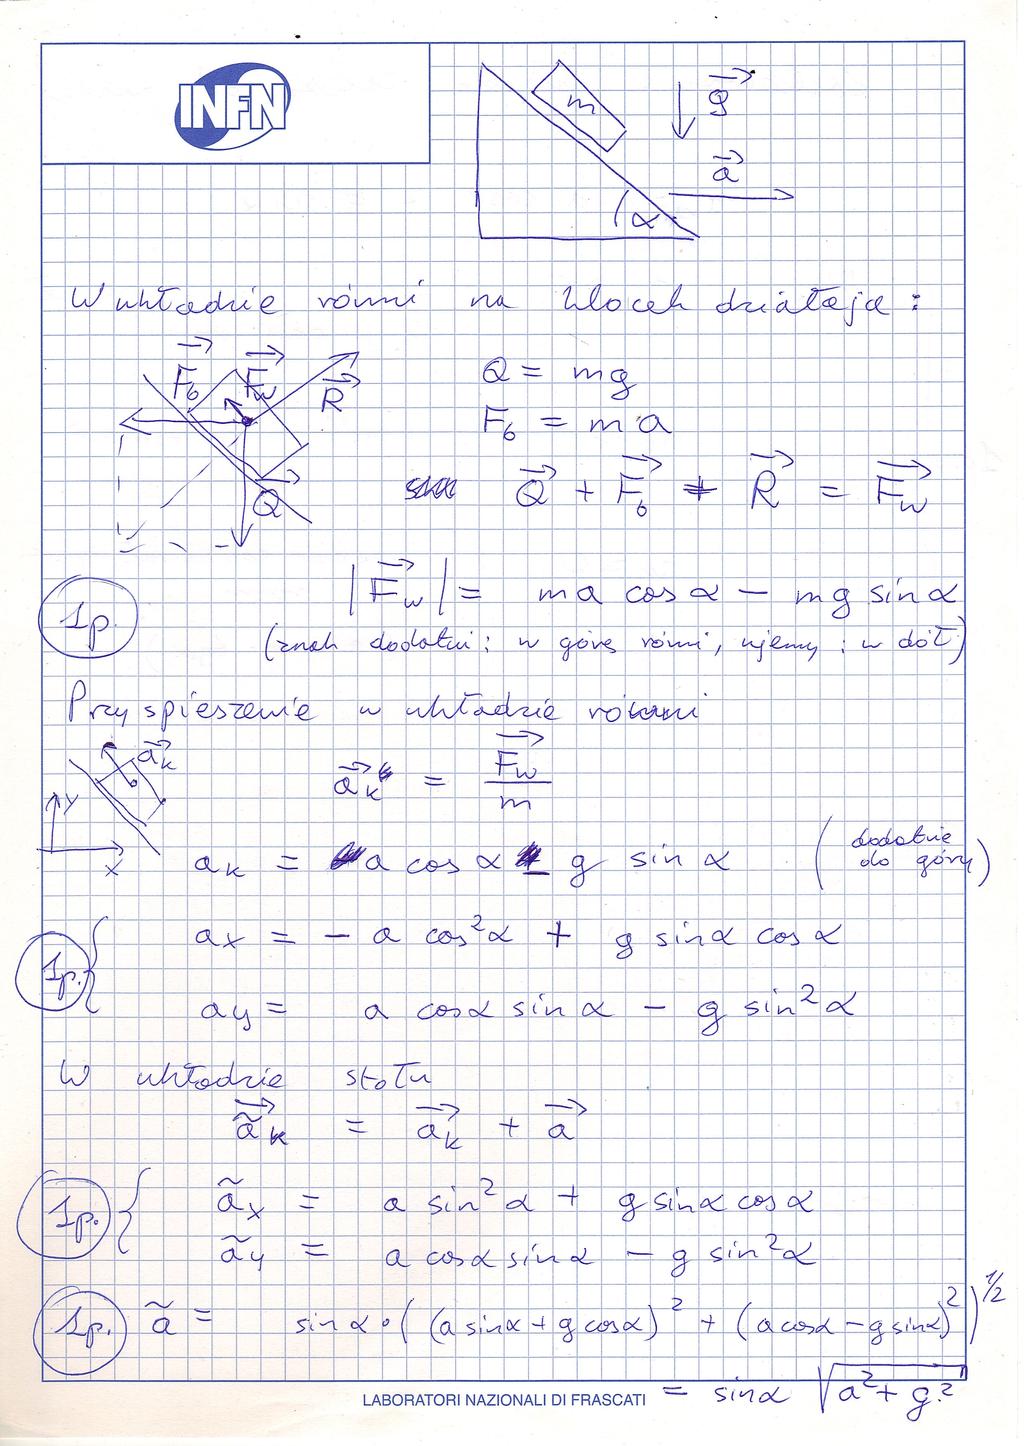 INFN
m
g⃗
a⃗
α
W układzie równi na klocek działają:
F⃗_b F⃗_w R⃗
Q⃗
Q = mg
F_b = ma
Q⃗ + F⃗_b + R⃗ = F⃗_w
1p.
|F⃗_w| = ma cos α − mg sin α
(znak dodatni: w górę równi, ujemny: w dół)
Przyspieszenie w układzie równi
a⃗_k
y
x
a⃗_k = F⃗_w / m
a_k = a cos α − g sin α (dodatnie do góry)
1p.
a_x = − a cos²α + g sin α cos α
a_y = a cos α sin α − g sin²α
W układzie stołu
ã⃗_k = a⃗_k + a⃗
1p.
ã_x = a sin²α + g sin α cos α
ã_y = a cos α sin α − g sin²α
1p. ã = sin α · ((a sin α + g cos α)² + (a cos α − g sin α)²)^1/2
= sin α √(a² + g²)
LABORATORI NAZIONALI DI FRASCATI